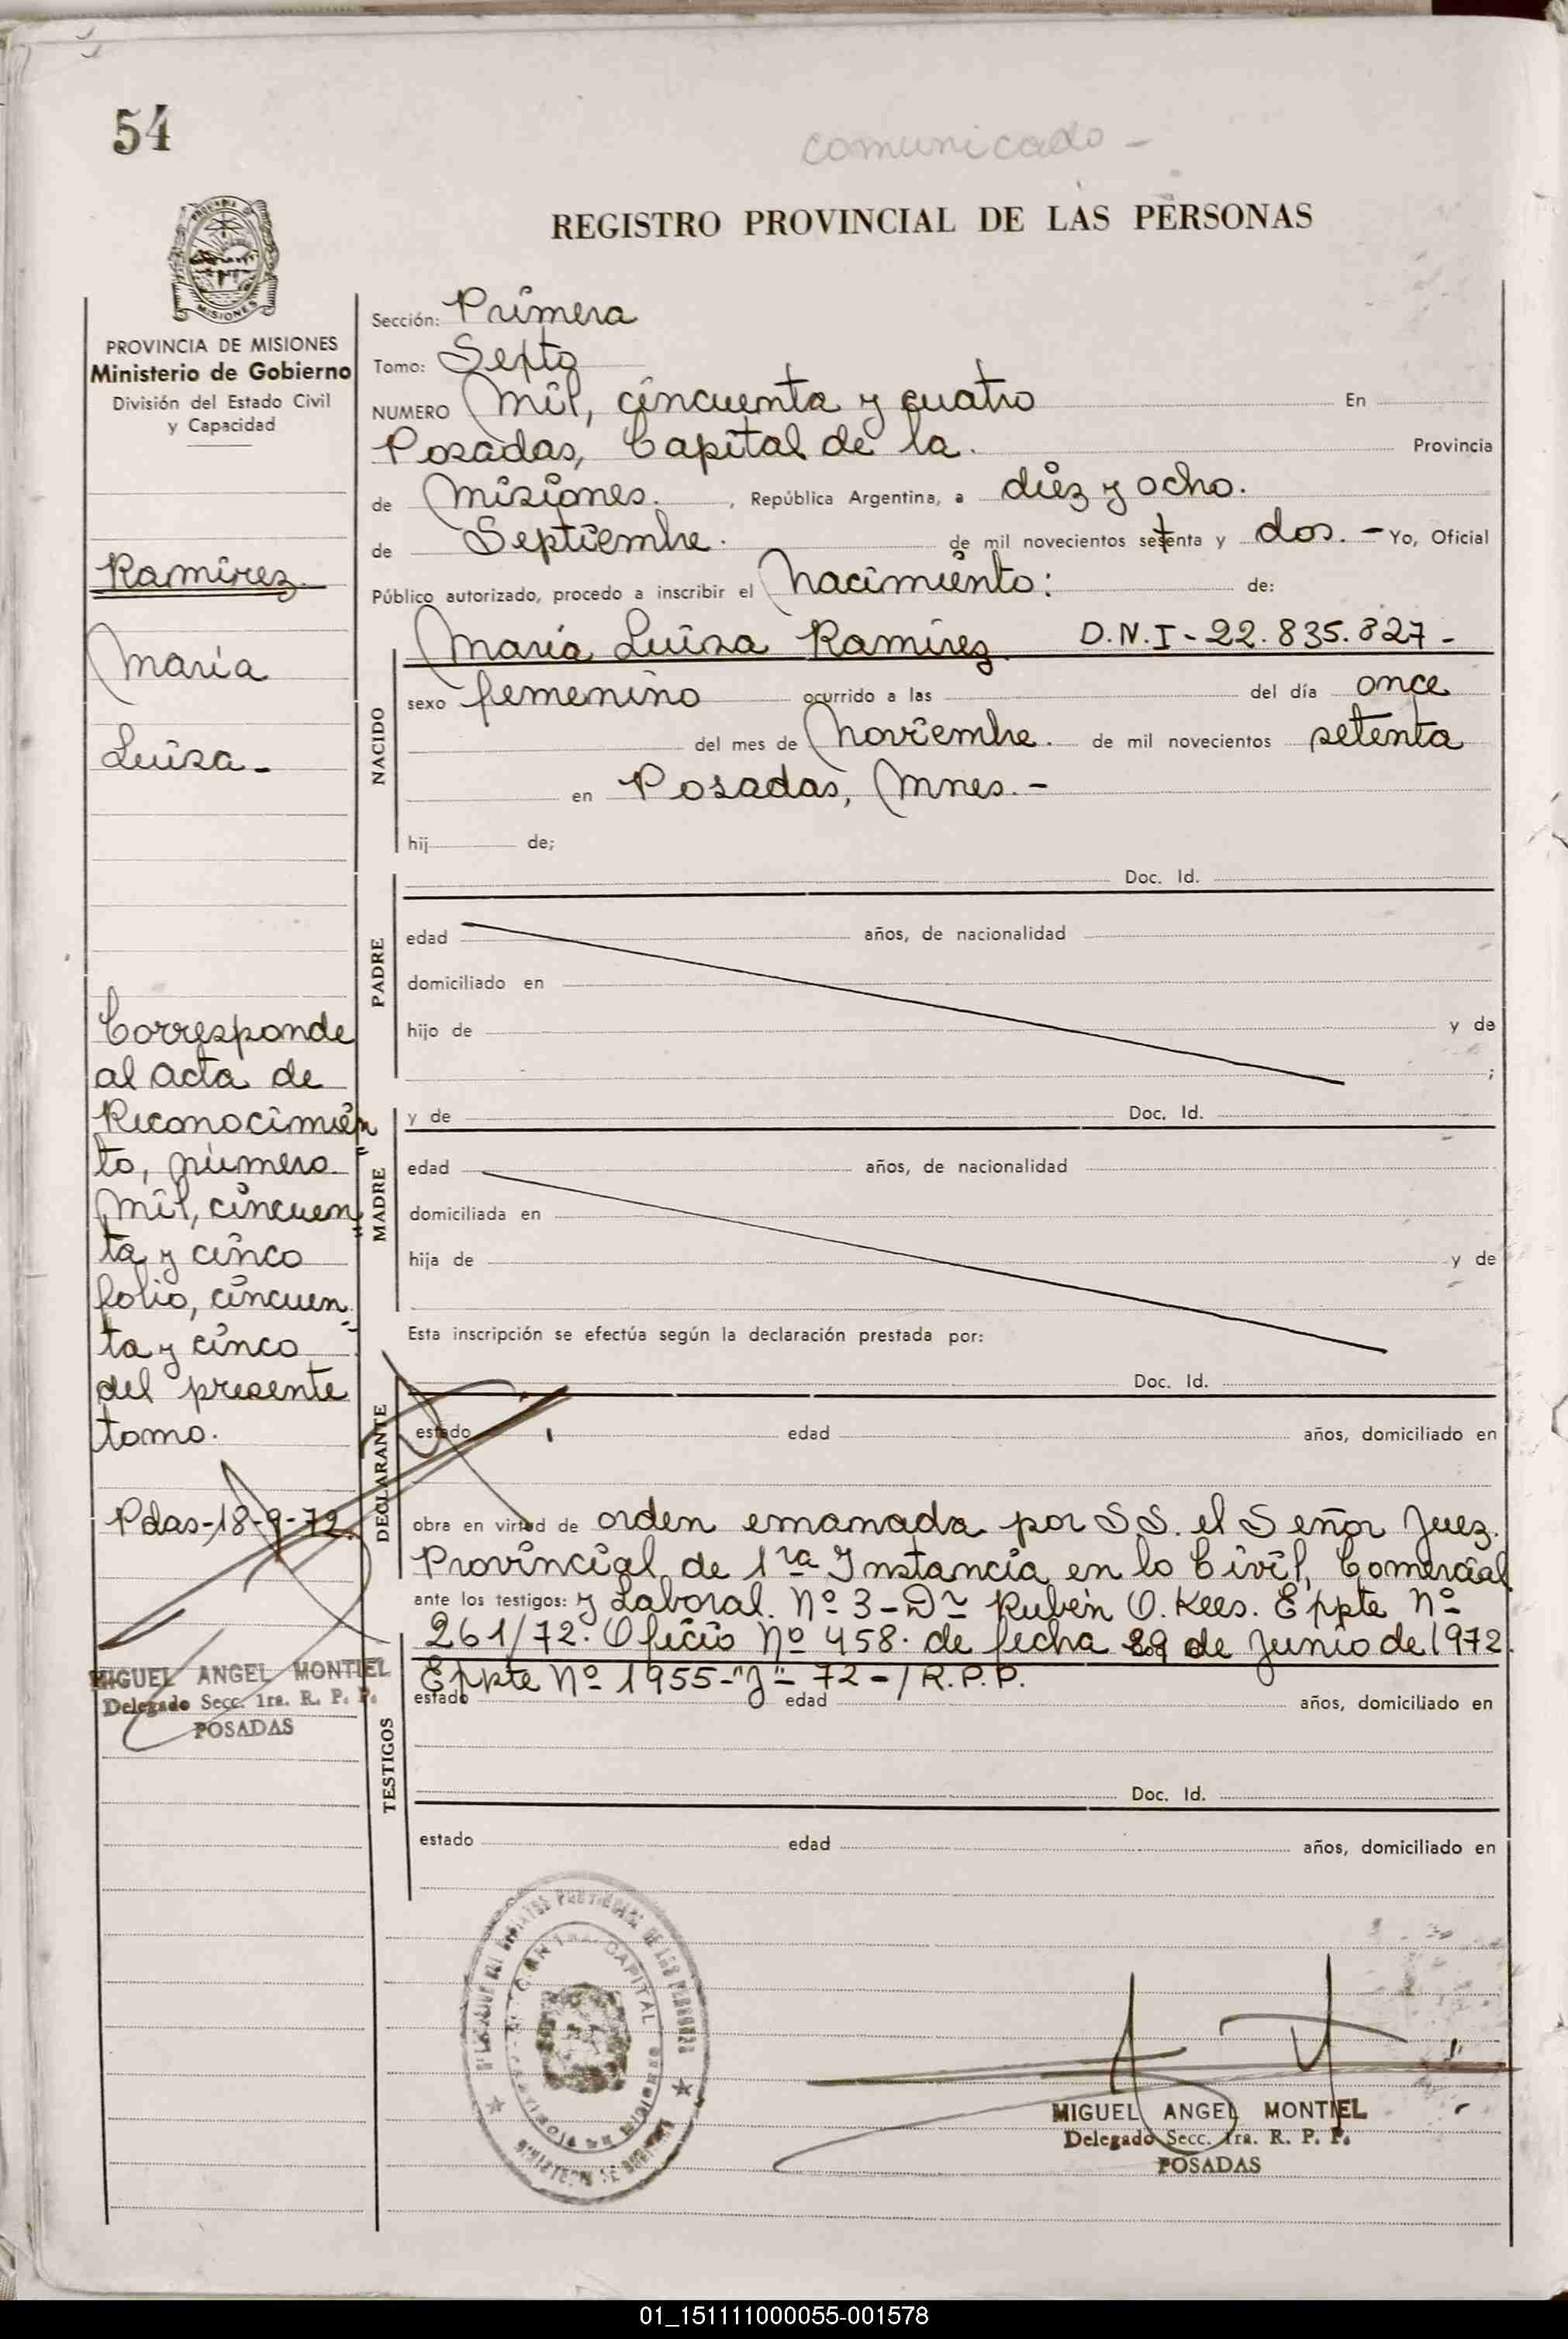 54
comunicado -
REGISTRO PROVINCIAL DE LAS PERSONAS
PROVINCIA DE MISIONES
Ministerio de Gobierno
División del Estado Civil
y Capacidad
Ramírez.
María
Luisa.-
Corresponde
al acta de
Reconocimien
to, número
mil, cincuen
ta y cinco
folio, cincuen
ta y cinco
del presente
tomo.
Pdas-18-9-72.
MIGUEL ANGEL MONTIEL
Delegado Secc. 1ra. R. P. P.
POSADAS
Sección: Primera
Tomo: Septo
NUMERO Mil, cincuenta y cuatro En
Posadas, Capital de la. Provincia
de Misiones. , República Argentina, a diez y ocho.
de Septiembre. de mil novecientos setenta y dos. - Yo, Oficial
Público autorizado, procedo a inscribir el Nacimiento: de:
María Luisa Ramírez D.N.I-22.835.827-
NACIDO
sexo femenino ocurrido a las del día once
del mes de Noviembre. de mil novecientos setenta
en Posadas, Mnes.-
hij de;
PADRE
Doc. Id.
edad años, de nacionalidad
domiciliado en
hijo de y de
;
MADRE
y de Doc. Id.
edad años, de nacionalidad
domiciliada en
hija de y de
Esta inscripción se efectúa según la declaración prestada por:
DECLARANTE
Doc. Id.
estado edad años, domiciliado en
obra en virtud de orden emanada por S.S. el Señor Juez.
Provincial de 1ra Instancia en lo Civil, Comercial
ante los testigos: y Laboral. Nº 3-Dr Rubén O. Kees. Eppte Nº
261/72. Oficio Nº 458. de fecha 29 de Junio de 1972.
Eppte Nº 1955-"J"- 72-/R.P.P.
TESTIGOS
estado edad años, domiciliado en
Doc. Id.
estado edad años, domiciliado en
CAPITAL
MIGUEL ANGEL MONTIEL
Delegado Secc. 1ra. R. P. P.
POSADAS
01_151111000055-001578